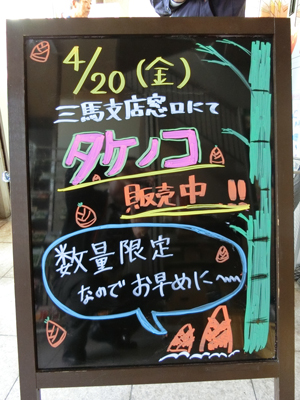 4/20(金)
三馬支店窓口にて
タケノコ
販売中!!
数量限定
なのでお早めに〜